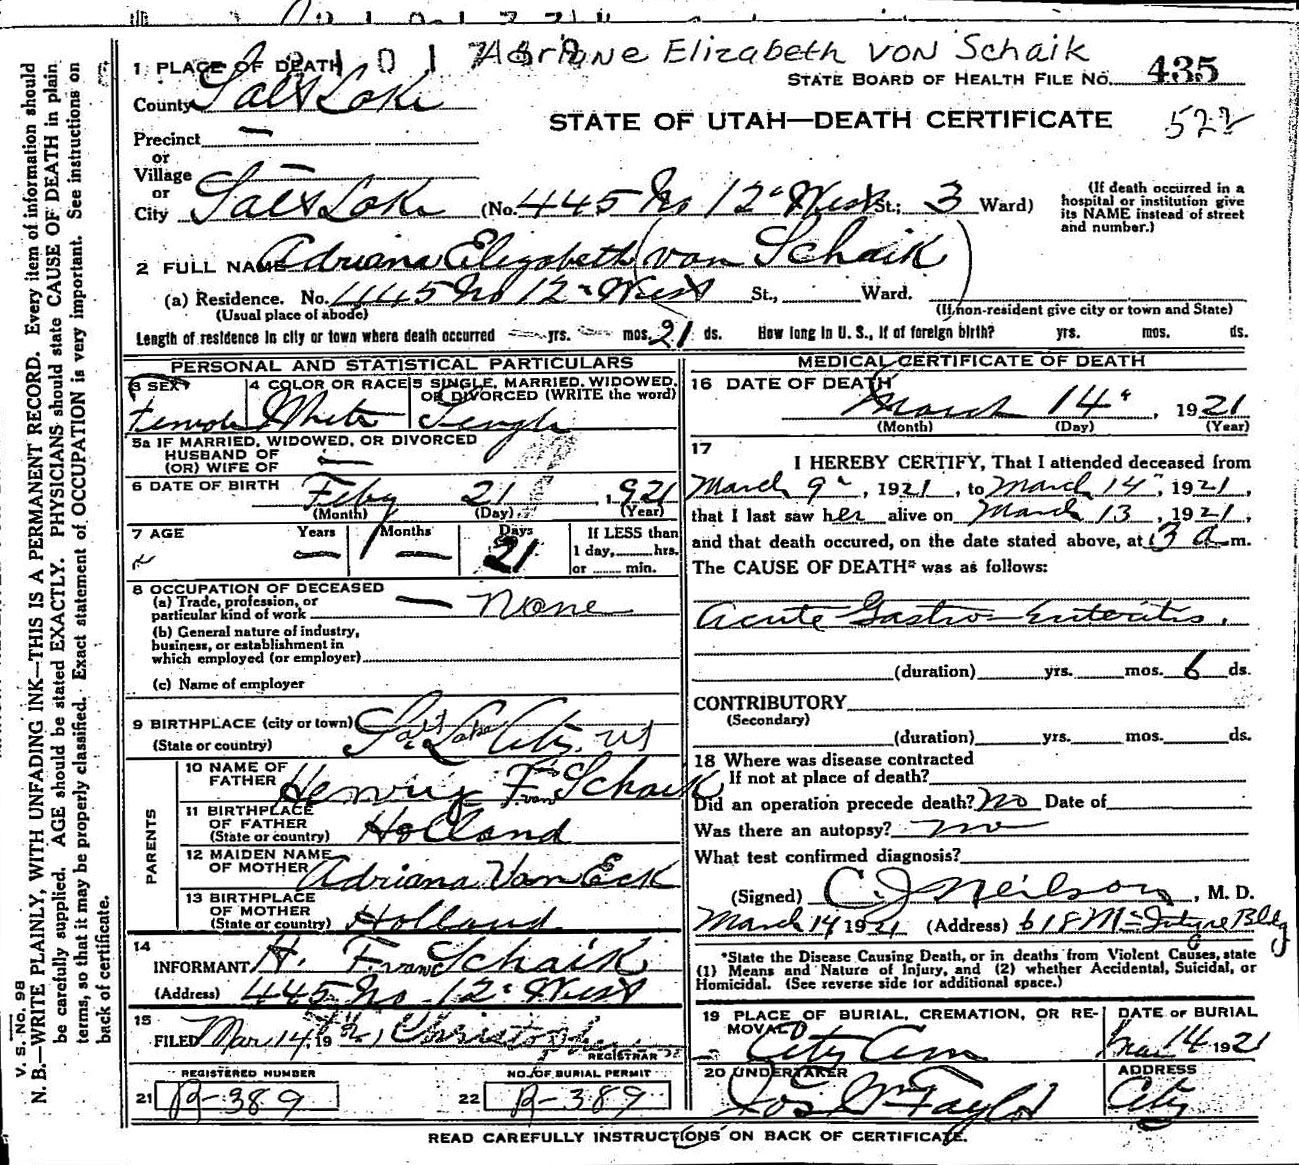 Adriane Elizabeth von Schaik
1 PLACE OF DEATH
STATE BOARD OF HEALTH FILE NO. 435
County Salt Lake
STATE OF UTAH—DEATH CERTIFICATE
522
Precinct —
or
Village —
or
City Salt Lake (No. 445 No 12" West St.; 3 Ward)
(If death occurred in a
hospital or institution give
its NAME instead of street
and number.)
2 FULL NAME Adriana Elizabeth (van Schaik)
(a) Residence. No. 445 No 12" West St., Ward.
(Usual place of abode)
(If non-resident give city or town and State)
Length of residence in city or town where death occurred — yrs. — mos. 21 ds. How long in U. S., if of foreign birth? yrs. mos. ds.
PERSONAL AND STATISTICAL PARTICULARS
3 SEX
Female
4 COLOR OR RACE
White
5 SINGLE, MARRIED, WIDOWED,
OR DIVORCED (WRITE the word)
Single
5a IF MARRIED, WIDOWED, OR DIVORCED
HUSBAND OF
(OR) WIFE OF —
6 DATE OF BIRTH Feby 21 1921
(Month) (Day) (Year)
7 AGE Years Months Days If LESS than
— — 21 1 day, hrs.
or min.
8 OCCUPATION OF DECEASED
(a) Trade, profession, or
particular kind of work — None
(b) General nature of industry,
business, or establishment in
which employed (or employer)
(c) Name of employer
9 BIRTHPLACE (city or town) Salt Lake City, Ut
(State or country)
PARENTS
10 NAME OF
FATHER Henry F. van Schaik
11 BIRTHPLACE
OF FATHER
(State or country) Holland
12 MAIDEN NAME
OF MOTHER Adriana Van Eck
13 BIRTHPLACE
OF MOTHER
(State or country) Holland
14
INFORMANT H. F. van Schaik
(Address) 445 No 12" West
15
FILED Mar 14 1921
REGISTRAR
REGISTERED NUMBER
21 B-389
NO. OF BURIAL PERMIT
22 B-389
MEDICAL CERTIFICATE OF DEATH
16 DATE OF DEATH
March 14", 1921
(Month) (Day) (Year)
17
I HEREBY CERTIFY, That I attended deceased from
March 9", 1921, to March 14", 1921,
that I last saw her alive on March 13, 1921,
and that death occured, on the date stated above, at 3 a m.
The CAUSE OF DEATH* was as follows:
Acute Gastro-Enteritis.
(duration) yrs. mos. 6 ds.
CONTRIBUTORY
(Secondary)
(duration) yrs. mos. ds.
18 Where was disease contracted
If not at place of death?
Did an operation precede death? No Date of
Was there an autopsy? no
What test confirmed diagnosis?
(Signed) C. J. Neilson, M. D.
March 14 1921 (Address) 618 McIntyre Bldg
*State the Disease Causing Death, or in deaths from Violent Causes, state
(1) Means and Nature of Injury, and (2) whether Accidental, Suicidal, or
Homicidal. (See reverse side for additional space.)
19 PLACE OF BURIAL, CREMATION, OR RE-
MOVAL
City Cem
DATE OF BURIAL
Mar 14 1921
20 UNDERTAKER
Jos Wm Taylor
ADDRESS
City
READ CAREFULLY INSTRUCTIONS ON BACK OF CERTIFICATE.
V. S. NO. 98
N. B.—WRITE PLAINLY, WITH UNFADING INK—THIS IS A PERMANENT RECORD. Every item of information should
be carefully supplied. AGE should be stated EXACTLY. PHYSICIANS should state CAUSE OF DEATH in plain
terms, so that it may be properly classified. Exact statement of OCCUPATION is very important. See instructions on
back of certificate.